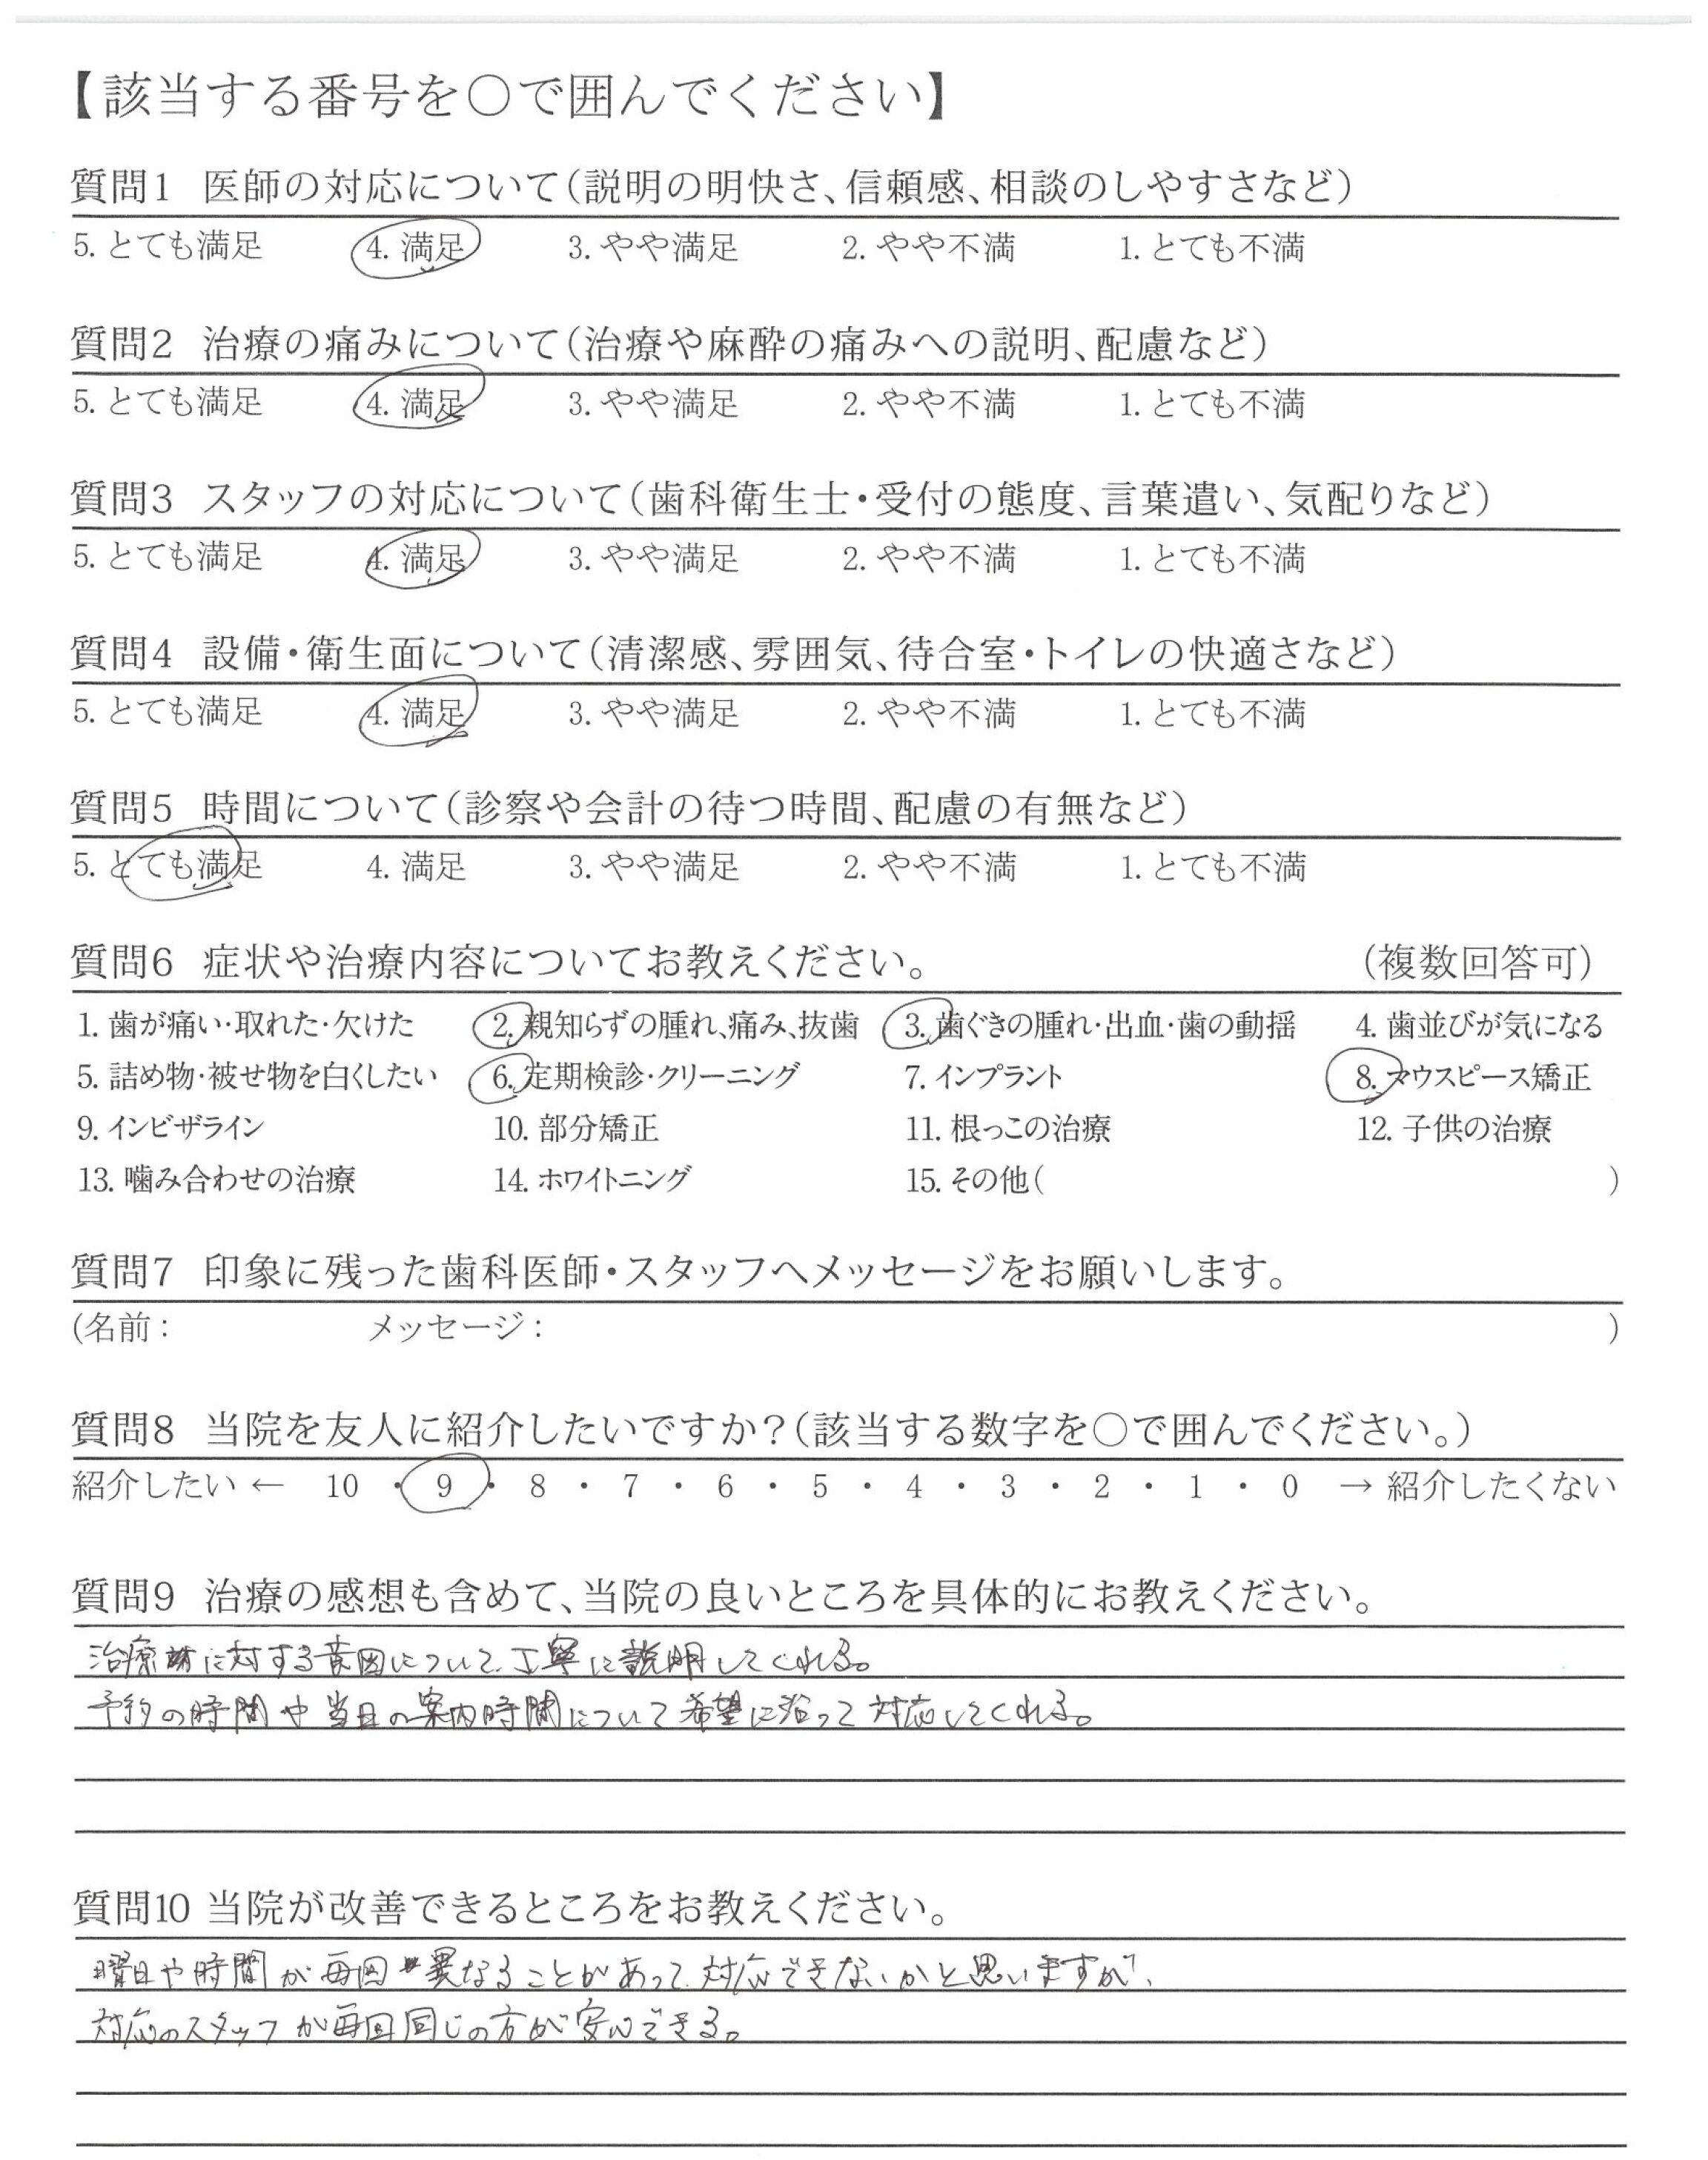 【該当する番号を○で囲んでください】
質問1 医師の対応について(説明の明快さ、信頼感、相談のしやすさなど)
5. とても満足 4. 満足 3. やや満足 2. やや不満 1. とても不満
質問2 治療の痛みについて(治療や麻酔の痛みへの説明、配慮など)
5. とても満足 4. 満足 3. やや満足 2. やや不満 1. とても不満
質問3 スタッフの対応について(歯科衛生士・受付の態度、言葉遣い、気配りなど)
5. とても満足 4. 満足 3. やや満足 2. やや不満 1. とても不満
質問4 設備・衛生面について(清潔感、雰囲気、待合室・トイレの快適さなど)
5. とても満足 4. 満足 3. やや満足 2. やや不満 1. とても不満
質問5 時間について(診察や会計の待つ時間、配慮の有無など)
5. とても満足 4. 満足 3. やや満足 2. やや不満 1. とても不満
質問6 症状や治療内容についてお教えください。 (複数回答可)
1. 歯が痛い・取れた・欠けた 2. 親知らずの腫れ、痛み、抜歯 3. 歯ぐきの腫れ・出血・歯の動揺 4. 歯並びが気になる
5. 詰め物・被せ物を白くしたい 6. 定期検診・クリーニング 7. インプラント 8. マウスピース矯正
9. インビザライン 10. 部分矯正 11. 根っこの治療 12. 子供の治療
13. 噛み合わせの治療 14. ホワイトニング 15. その他( )
質問7 印象に残った歯科医師・スタッフへメッセージをお願いします。
(名前: メッセージ: )
質問8 当院を友人に紹介したいですか?(該当する数字を○で囲んでください。)
紹介したい ← 10 ・ 9 ・ 8 ・ 7 ・ 6 ・ 5 ・ 4 ・ 3 ・ 2 ・ 1 ・ 0 → 紹介したくない
質問9 治療の感想も含めて、当院の良いところを具体的にお教えください。
治療に対する原因について丁寧に説明してくれる。
予約の時間や当日の案内時間について希望に沿って対応してくれる。
質問10 当院が改善できるところをお教えください。
曜日や時間が毎回異なることがあって対応できないかと思いますが、
対応のスタッフが毎回同じの方が安心できる。